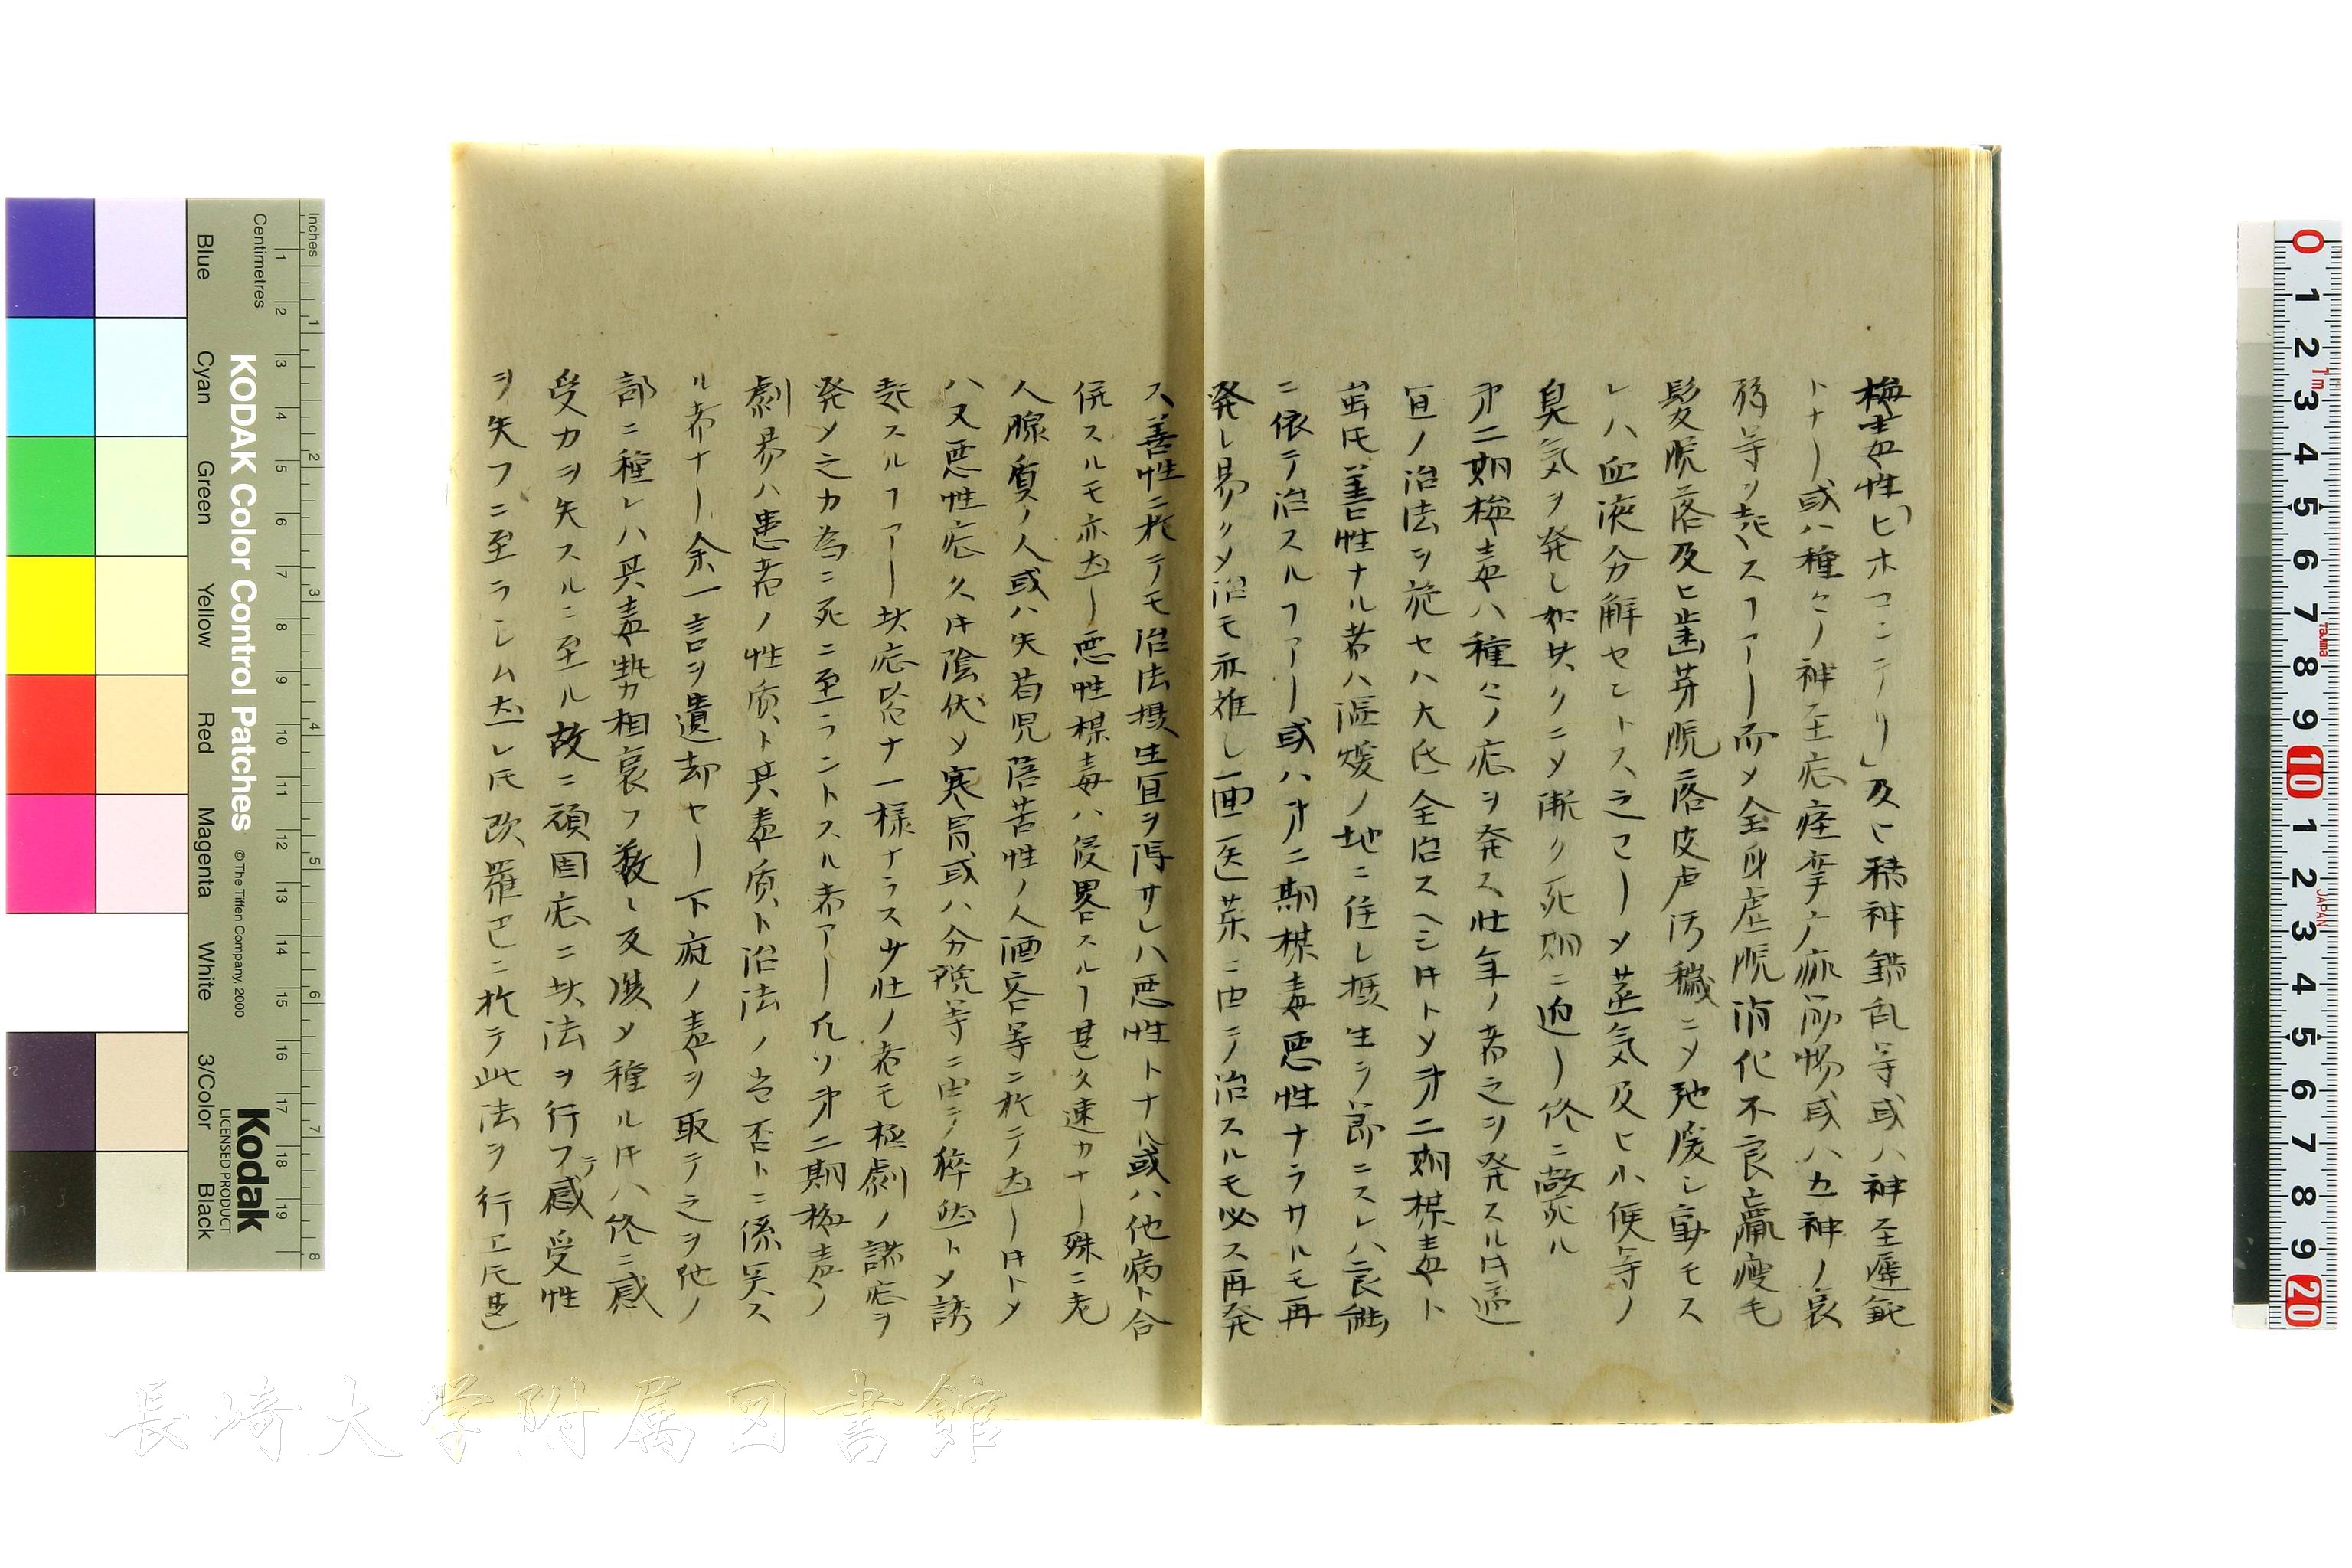 梅毒性「ヒホコンテリ」及ヒ精神錯乱等或ハ神至遅鈍
トナリ或ハ種々ノ神至症痙攣麻痺惕或ハ五神ノ衰
弱等ヲ起スヿアリ而メ全身虚脱消化不良羸痩毛
髪脱落及ヒ歯芽脱落皮膚汚穢ニメ弛緩シ動モス
レハ血液分解セントス之ニメ蒸気及ヒ小便等ノ
臭気ヲ発シ如此クニメ漸ク死期ニ迫リ終ニ斃死ル
第二期梅毒ハ種々ノ症ヲ発ス壮年ノ者之ヲ発スル时適
宜ノ治法ヲ施セハ大氐全治スヘシ时トメ第二期楳毒ト
雖氏善性ナル者ハ温煖ノ地ニ住シ摂生ヲ節ニスレハ良能
ニ依テ治スルヿアリ或ハ第二期楳毒悪性ナラサルモ再
発シ易クメ治モ亦難シ一回医薬ニ由テ治スルモ必ス再発
ス善性ニ於テモ治法摂生宜ヲ得サレハ悪性トナル或ハ他病ト合
併スルモ亦然リ悪性楳毒ハ侵畧スルヿ甚タ速カナリ殊ニ老
人腺質ノ人或ハ失苟児陪苦性ノ人酒客等ニ於テ然リ时トメ
ハ又悪性症久时陰伏メ寒冒或ハ分娩等ニ由テ稡然トメ誘
起スルヿアリ此症定ナ一様ナラス少壮ノ者モ極劇ノ諸症ヲ
発メ之カ為ニ死ニ至ラントスル者アリ凡ソ第二期梅毒ノ
劇易ハ患者ノ性质ト其毒质ト治法ノ当否トニ係関ス
ル者ナリ余一言ヲ遺却セリ下疳ノ毒ヲ取テ之ヲ他ノ
部ニ種レハ其毒勢相衰フ数々反復メ種ル时ハ終ニ感
受力ヲ失スルニ至ル故ニ頑固症ニ此法ヲ行フテ感受性
ヲ失フニ至ラシム然レ氏欧羅巴ニ於テ此法ヲ行エ氏甚
Inches
Centimetres
KODAK Color Control Patches
© The Tiffen Company, 2000
Kodak
LICENSED PRODUCT
Blue
Cyan
Green
Yellow
Red
Magenta
White
3/Color
Black
長崎大学附属図書館